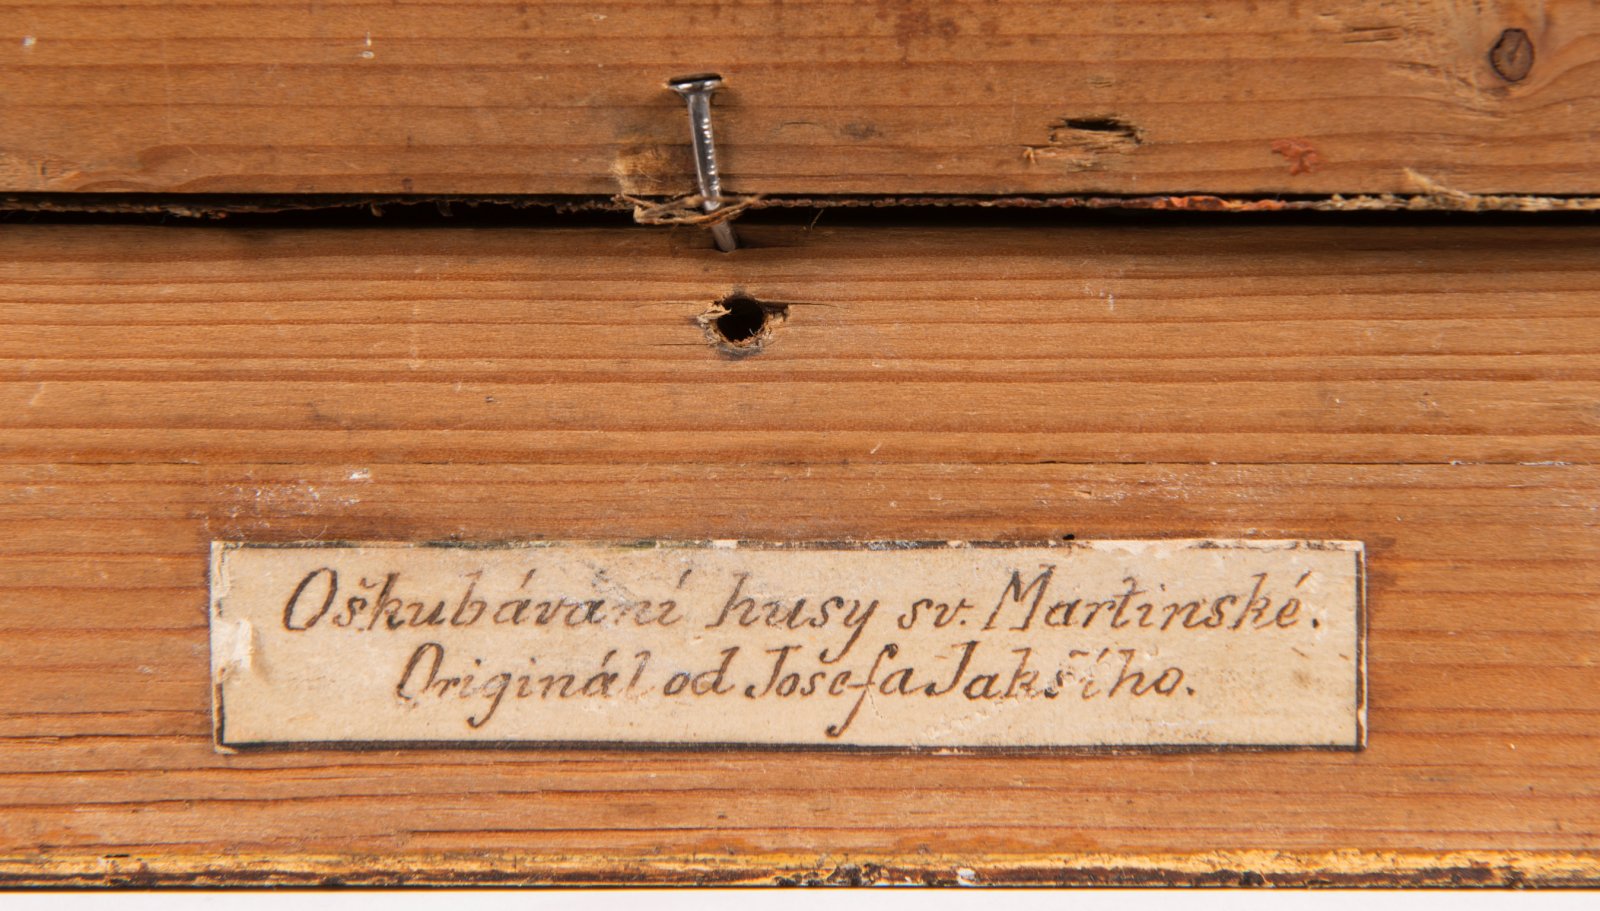 Oškubávání husy sv. Martinské.
Originál od Josefa Jakšího.